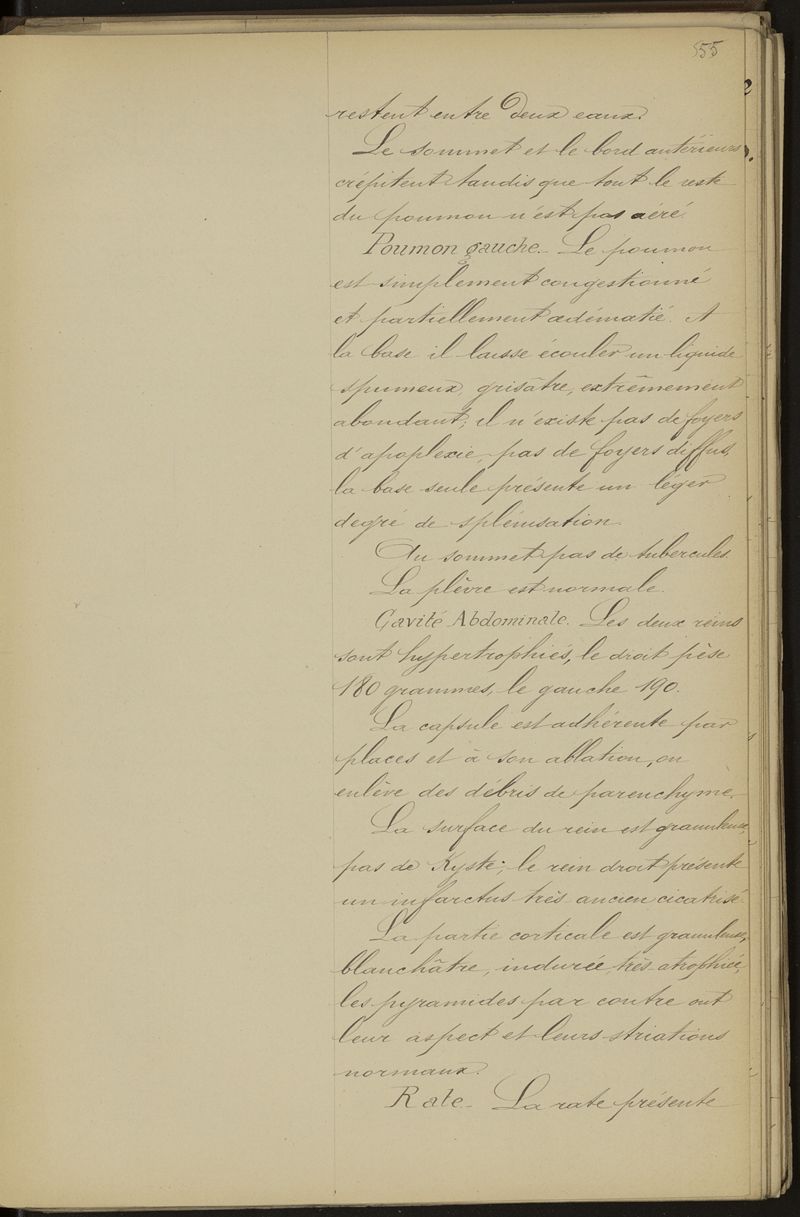 55
restent entre deux eaux.
Le sommet et le bord antérieurs
crépitent tandis que tout le reste
du poumon n'est pas aéré.
Poumon gauche. Le poumon
est simplement congestionné
et partiellement œdématié. A
la base il laisse écouler un liquide
spumeux, grisâtre, extrêmement
abondant; il n'existe pas de foyers
d'apoplexie, pas de foyers diffus,
la base seule présente un léger
degré de splénisation.
Au sommet pas de tubercules.
La plèvre est normale.
Cavité Abdominale. Les deux reins
sont hypertrophiés, le droit pèse
180 grammes, le gauche 190.
La capsule est adhérente par
places et à son ablation, on
enlève des débris de parenchyme.
La surface du rein est granuleuse,
pas de Kyste; le rein droit présente
un infarctus très ancien cicatrisé.
La partie corticale est granuleuse,
blanchâtre, indurée, très atrophiée,
les pyramides par contre ont
leur aspect et leurs striations
normaux.
Rate. La rate présente